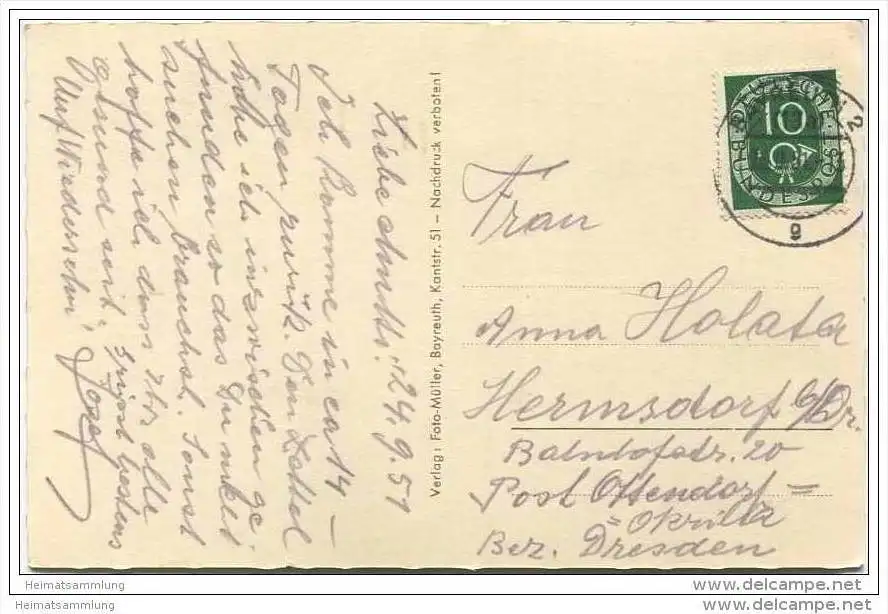 Liebe Amtti! 24.9.51
Ich komme in ca 14 –
Tagen zurück. Den Zettel
habe ich inzwischen ge-
funden so das Du nicht
suchen brauchst. Sonst
hoffe ich dass Ihr alle
gesund seit, grüsst bestens
Auf Wiedersehn, Josef
Verlag: Foto-Müller, Bayreuth, Kantstr. 51 – Nachdruck verboten!
DEUTSCHE
10
BUNDESPOST
g
Frau
Anna Holata
Hermsdorf b/Dr.
Bahnhofstr. 20
Post Ottendorf =
Okrilla
Bez. Dresden
Heimatsammlung
Heimatsammlung
www.delcampe.net
www.delcampe.net